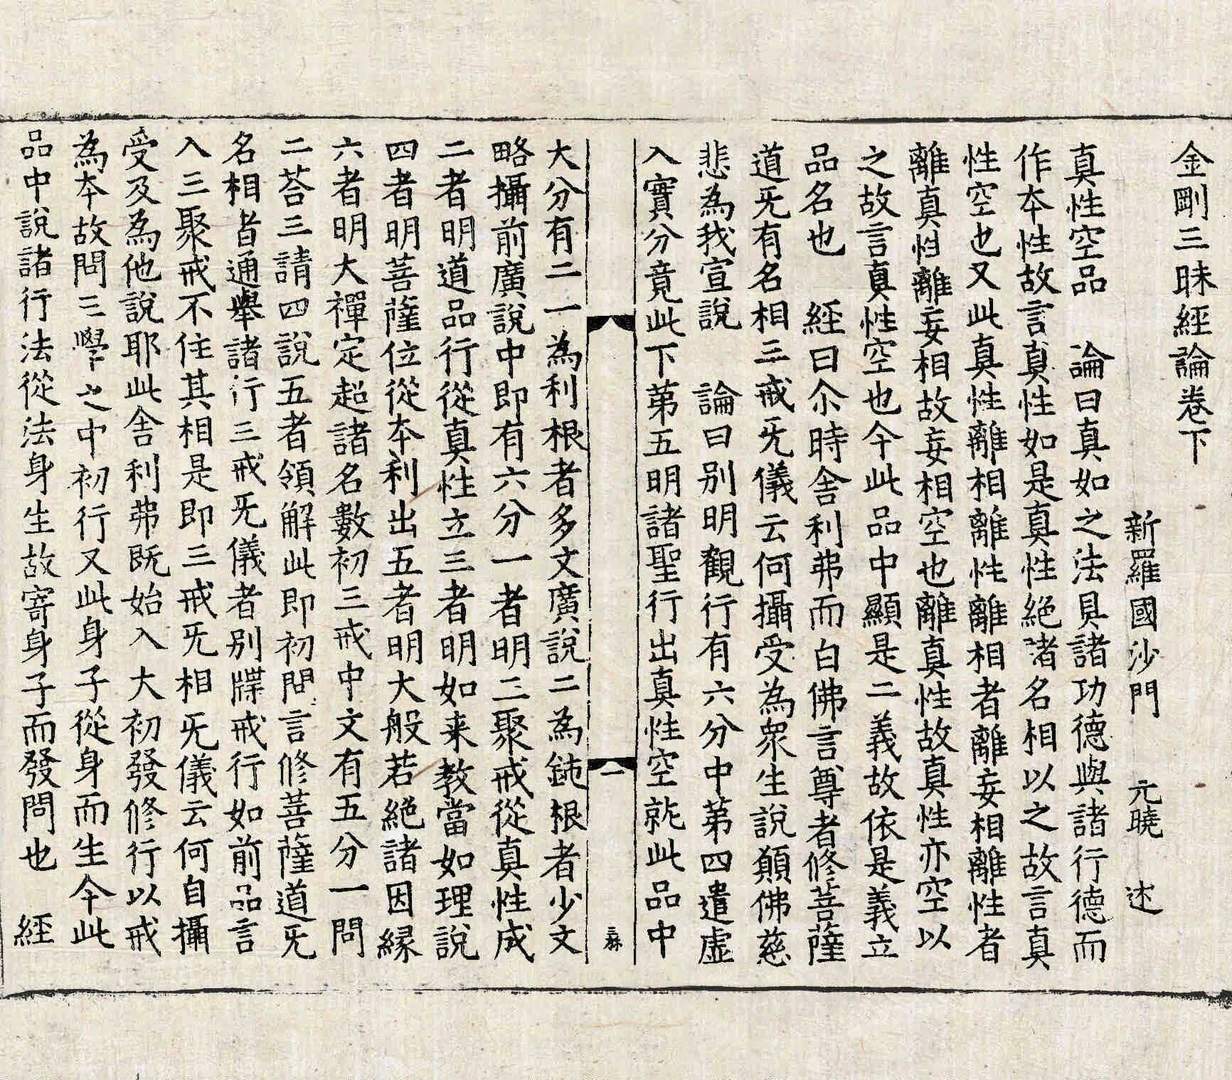 金剛三昧經論卷下
新羅國沙門 元曉 述
真性空品 論曰真如之法具諸功德與諸行德而
作本性故言真性如是真性絕諸名相以之故言真
性空也又此真性離相離性離相者離妄相離性者
離真性離妄相故妄相空也離真性故真性亦空以
之故言真性空也今此品中顯是二義故依是義立
品名也 經曰尒時舍利弗而白佛言尊者修菩薩
道旡有名相三戒旡儀云何攝受為衆生說願佛慈
悲為我宣說 論曰別明觀行有六分中第四遣虛
入實分竟此下第五明諸聖行出真性空就此品中
三昧
一
大分有二一為利根者多文廣說二為鈍根者少文
略攝前廣說中即有六分一者明三聚戒從真性成
二者明道品行從真性立三者明如来教當如理說
四者明菩薩位從夲利出五者明大般若絕諸因緣
六者明大禪定超諸名數初三戒中文有五分一問
二荅三請四說五者領解此即初問言修菩薩道旡
名相者通舉諸行三戒旡儀者別牒戒行如前品言
入三聚戒不住其相是即三戒旡相旡儀云何自攝
受及為他說耶此舍利弗既始入大初發修行以戒
為夲故問三學之中初行又此身子從身而生今此
品中說諸行法從法身生故寄身子而發問也 經